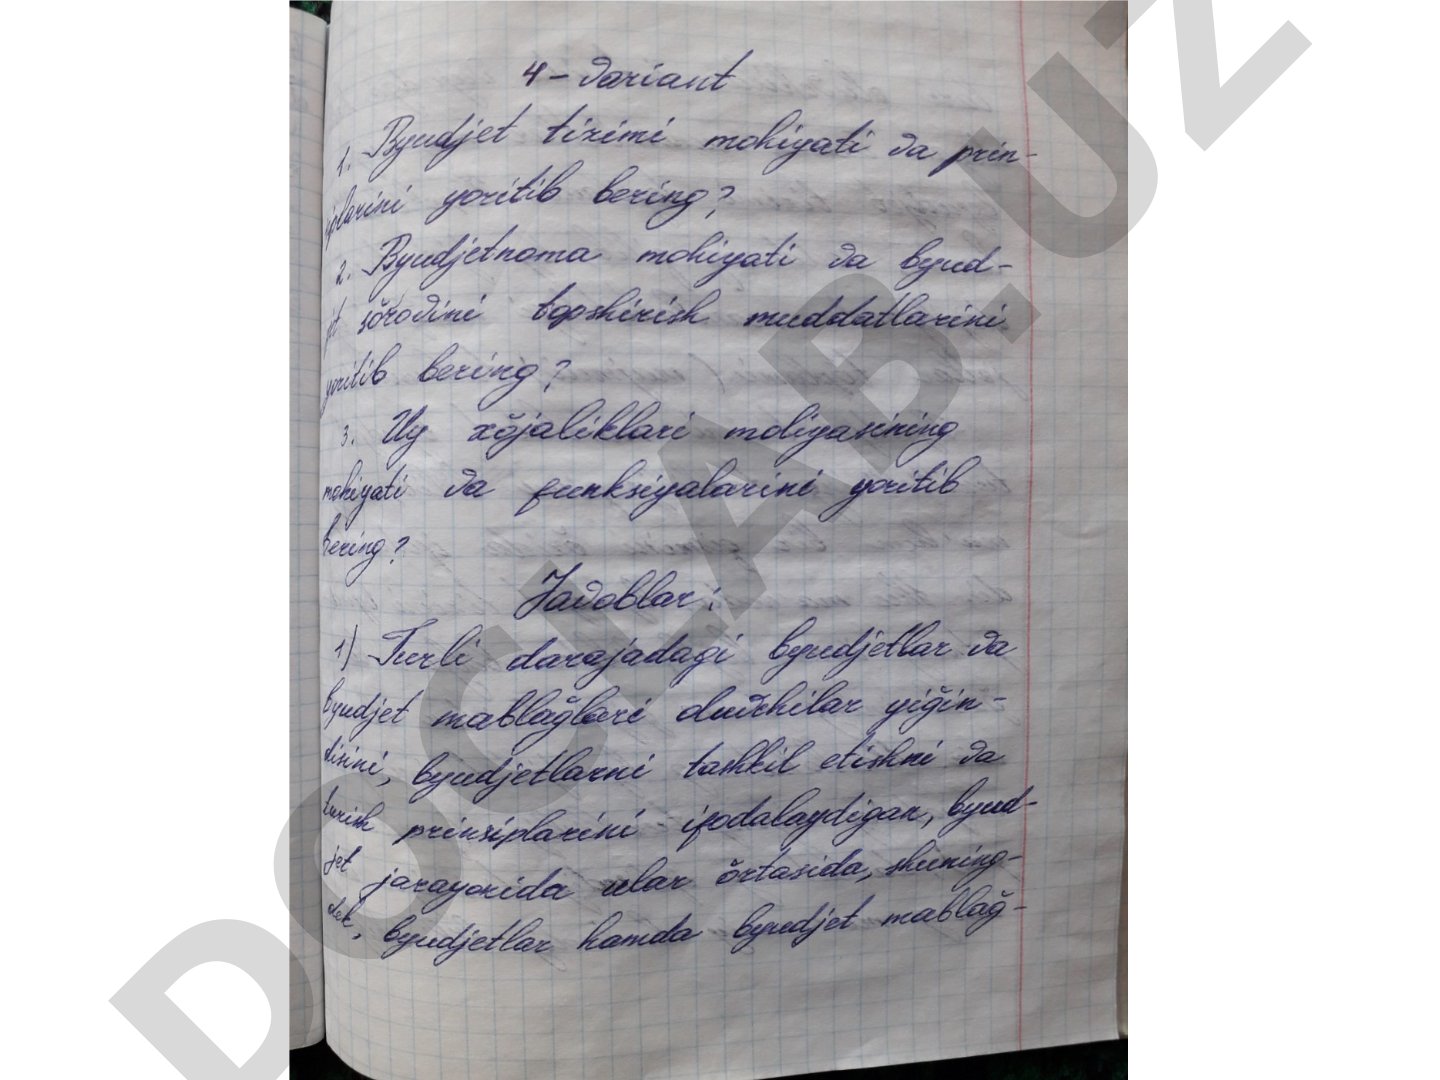 4 – variant
1. Byudjet tizimi mohiyati va prin-
siplarini yoritib bering?
2. Byudjetnoma mohiyati va byud-
jet so'rovini topshirish muddatlarini
yoritib bering?
3. Uy xo'jaliklari moliyasining
mohiyati va funksiyalarini yoritib
bering?
Javoblar:
1) Turli darajadagi byudjetlar va
byudjet mablag'lari oluvchilar yig'in-
disini, byudjetlarni tashkil etishni va
turish prinsiplarini ifodalaydigan, byud-
jet jarayonida ular o'rtasida, shuning-
dek, byudjetlar hamda byudjet mablag'-
DOCLAB.UZ